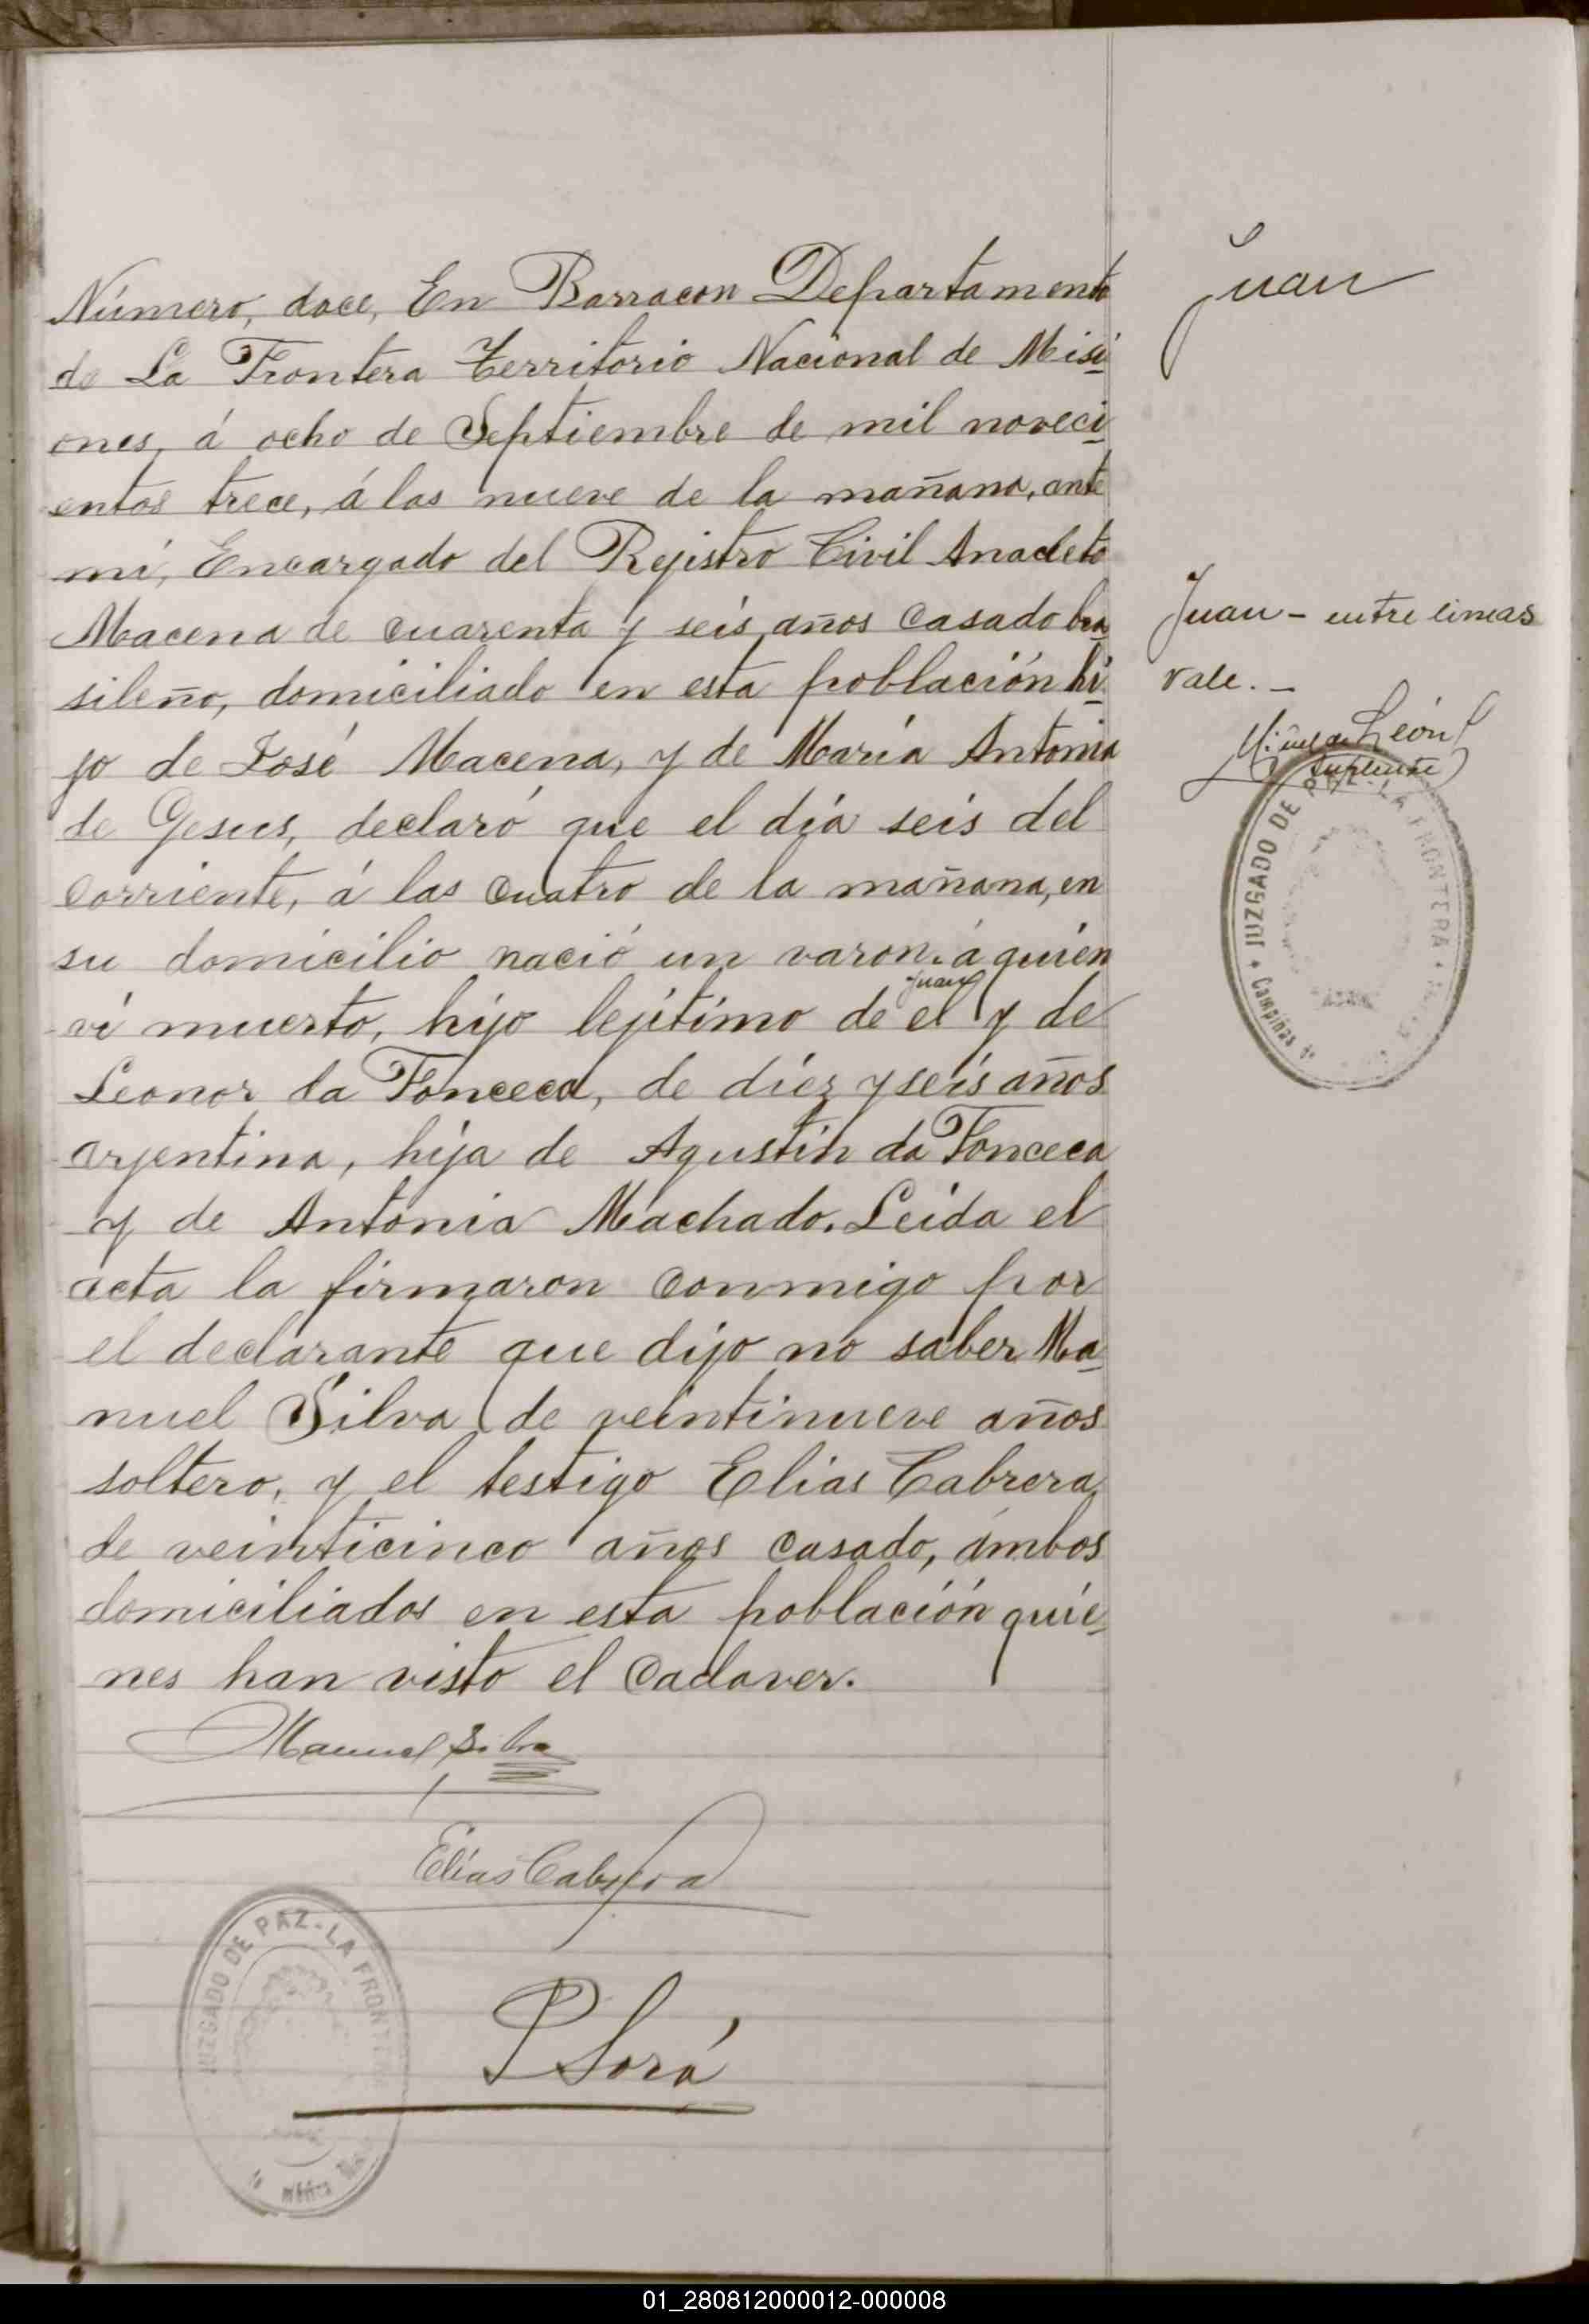 Número, doce, En Barracon Departamento
de La Frontera Territorio Nacional de Misi
ones, á ocho de Septiembre de mil noveci
entos trece, á las nueve de la mañana, ante
mi, Encargado del Rejistro Civil Anacleto
Macena de cuarenta y seis años casado bra
sileño, domiciliado en esta población hi
jo de José Macena, y de María Antonia
de Gesus, declaró que el día seis del
corriente, á las cuatro de la mañana, en
su domicilio nació un varon á quien
Juan
ví muerto, hijo lejítimo de el y de
Leonor da Fonceca, de diez y seis años
arjentina, hija de Agustin da Fonceca
y de Antonia Machado. Leida el
acta la firmaron conmigo por
el declarante que dijo no saber Ma
nuel Silva de veintinueve años
soltero, y el testigo Elias Cabrera
de veinticinco años casado, ámbos
domiciliados en esta población quie
nes han visto el cadaver.
Manuel Silva
Elías Cabrera
JUZGADO DE PAZ - LA FRONTERA
Juan
Juan - entre lineas
vale. -
León
Suplente
JUZGADO DE PAZ - LA FRONTERA
Campinas de
01_280812000012-000008